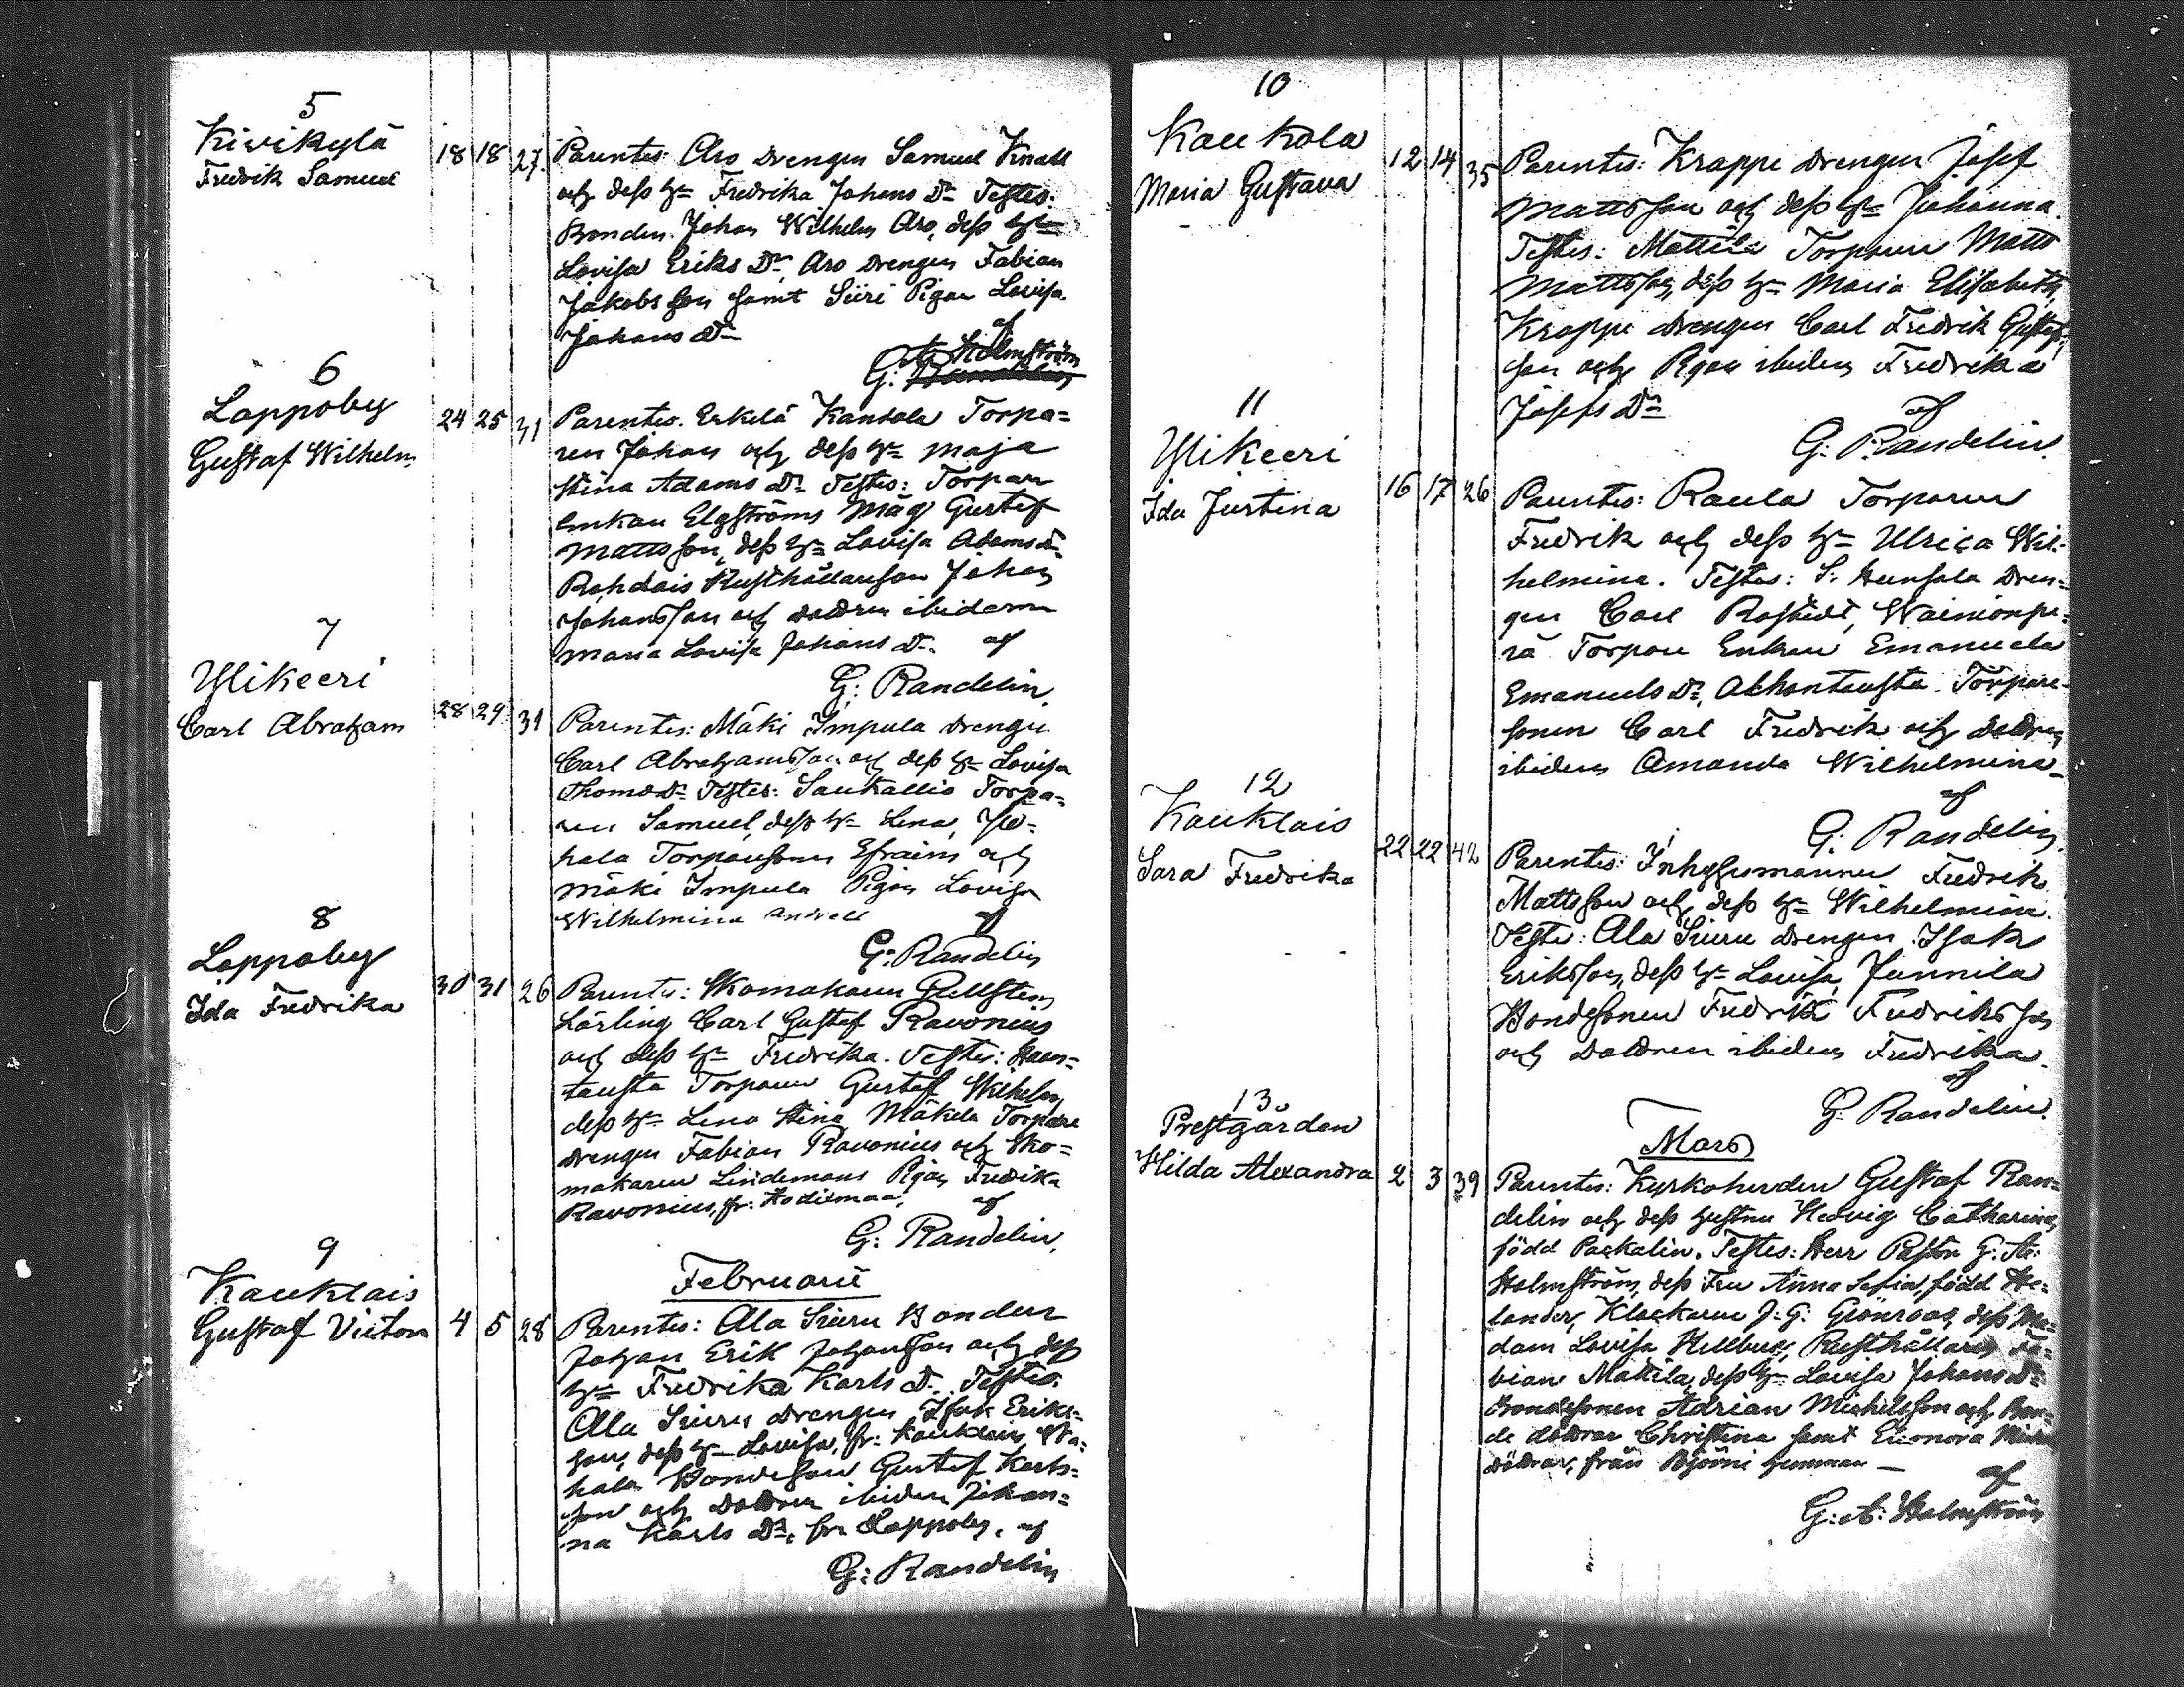 5
Kivikylä
Fredrik Samuel
18 18 27.
Parentes: Aro Drengen Samuel Knall
och dess h:u Fredrika Johans D:r Testes:
Bonden Johan Wilhelm Aro, dess h:u
Lovisa Eriks D:r, Aro Drengen Fabian
Jakobsson samt Siiri Pigan Lovisa
Johans D:r
af
G: A: Holmström
6
Lappoby
Gustaf Wilhelm
24 25 31
Parentes. Erkelä Kandola Torpa=
ren Johan och dess h:u Maja
Stina Adams D:r Testes: Torpare
Enkan Elgströms Måg Gustaf
Mattsson, dess h:u Lovisa Adams D:r
Rohdais Rusthållareson Johan
Johansson och Dottren ibidem
Maria Lovisa Johans D:r af
G: Randelin
7
Ylikeeri
Carl Abraham
28 29 31
Parentes: Mäki Impula Drengen
Carl Abrahamsson och dess h:u Lovisa
Thomæ D:r Testes: Saukallio Torpa=
ren Samuel, dess h:u Lena,
hala Torparesonen Efraim och
Mäki Impula Pigan Lovisa
Wilhelmina Andrell af
G: Randelin
8
Lappoby
Ida Fredrika
30 31 26
Parentes: Skomakaren
Lärling Carl Gustaf Ravonius
och dess h:u Fredrika. Testes: Haan=
tausta Torparen Gustaf Wilhelm,
dess h:u Lena Stina, Mäkelä Torpare
Drengen Fabian Ravonius och Sko=
makaren Lindemans Pigan Fredrika
Ravonius, fr: af
G: Randelin,
Februarii
9
Kauklais
Gustaf Victor
4 5 28
Parentes: Ala Siuru Bonden
Johan Erik Johansson och dess
h:u Fredrika Karls D:r Testes:
Ala Siuru Drengen Isak Eriks=
son, dess h:u Lovisa, fr: Kauklais, Wa=
hala Bondeson Gustaf Karls=
son och Dottren ibidem Johan=
na Karls D:r, fr: Lappoby, af
G: Randelin
10
Kaukola
Maria Gustava
12 14 35
Parentes: Krappe Drengen Josef
Mattsson och dess h:u Johanna.
Testes: Mattila Torparen Matts
Mattsson, dess h:u Maria Elisabeth,
Krappe Drengen Carl Fredrik Gustafs=
son och Pigan ibidem Fredrika
Josefs D:r
af
G: Randelin.
11
Ylikeeri
Ida Justina
16 17 26
Parentes: Raula Torparen
Fredrik och dess h:u Ulrica Wil=
helmina. Testes: S: Hunsala Dren=
gen Carl Rostedt, Wainionpe=
rä Torpare Enkan Emanuela
Emanuels D:r, Akhontausta Torpare=
sonen Carl Fredrik och Dottren
ibidem Amanda Wilhelmina
af
G: Randelin.
12
Kauklais
Sara Fredrika
22 22 42
Parentes: Inhysesmannen Fredrik
Mattsson och dess h:u Wilhelmina.
Testes: Ala Siuru Drengen Isak
Eriksson, dess h:u Lovisa, Junnila
Bondesonen Fredrik Fredriksson
och Dottren ibidem Fredrika.
af
G: Randelin.
Mars
13
Prestgården
Hilda Alexandra
2 3 39
Parentes: Kyrkoherden Gustaf Ran=
delin och dess hustru Hedvig Catharina,
född Packalin. Testes: Herr Pastor G: A:
Holmström, dess Fru Anna Sofia, född He=
lander, Klockaren J: G: Grönroos, dess Ma=
dam Lovisa Hellberg, Rusthållaren Fa=
bian Mäkilä, dess h:u Lovisa Johans D:r
Bondesonen Adrian Michelsson och Bon=
de döttrar Christina samt Eleonora
döttrar, från Björni hemman —
af
G: A: Holmström